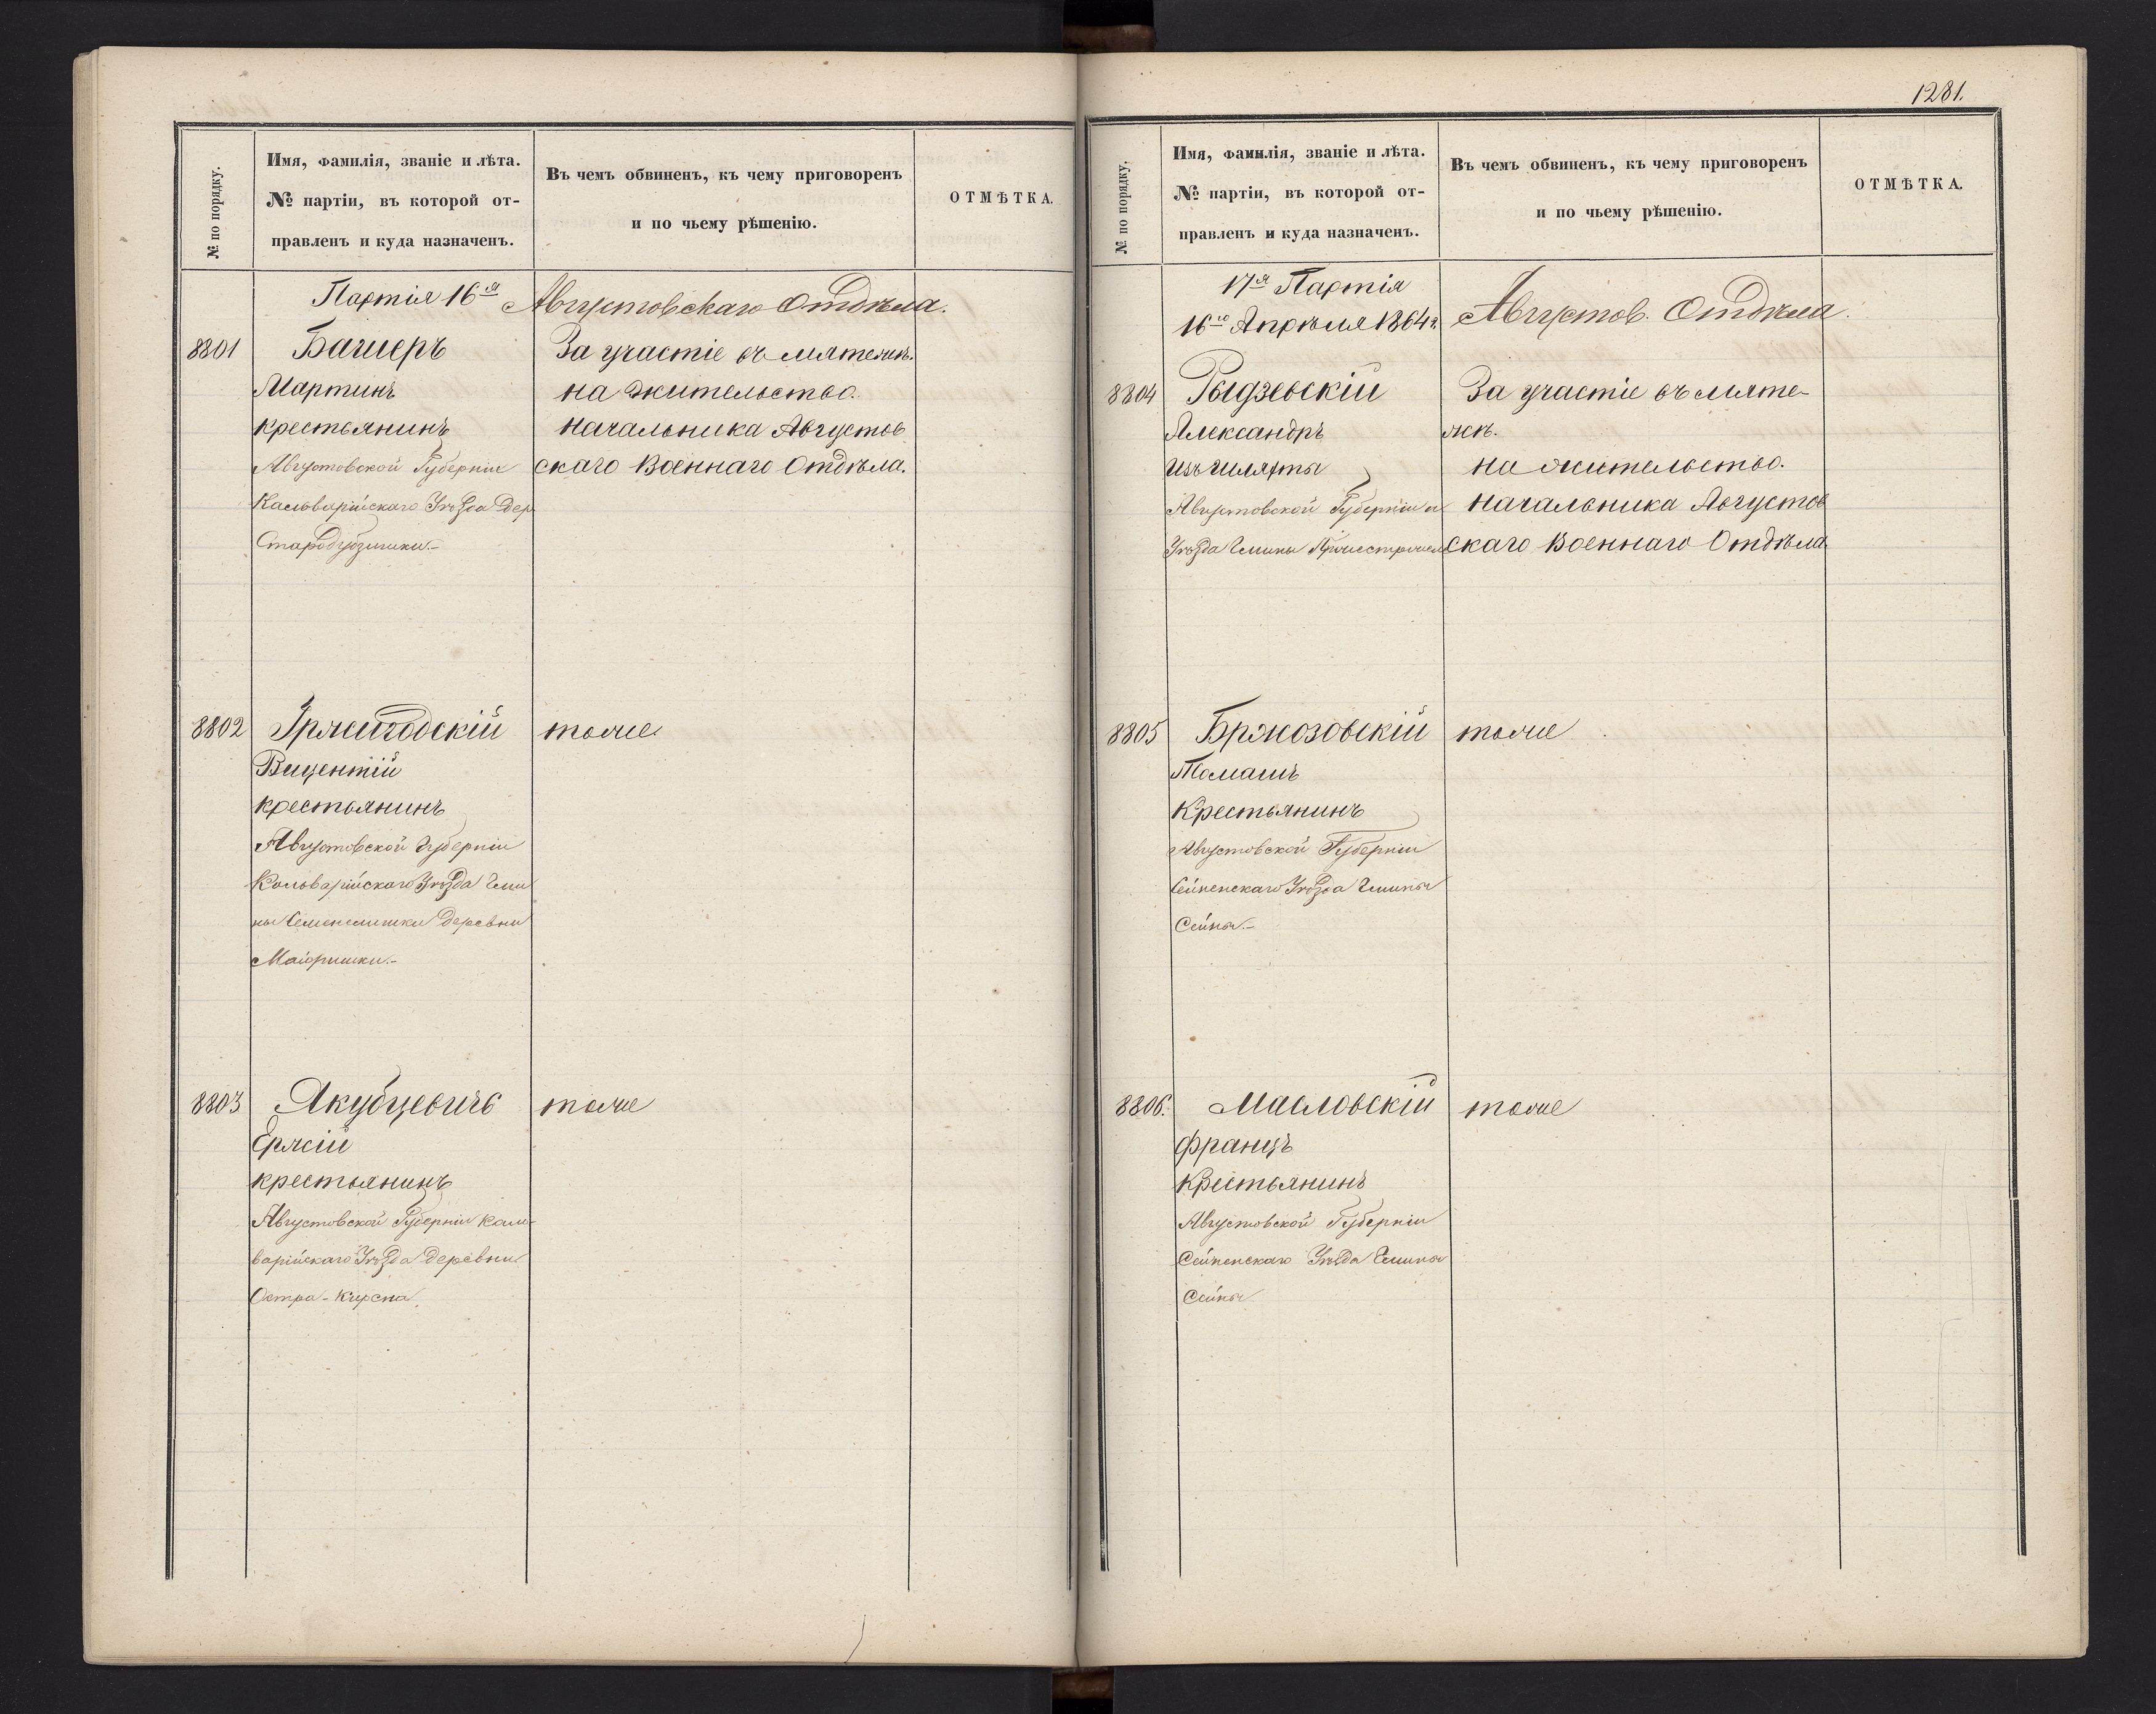 № по порядку.
Имя, фамилія, званіе и лѣта.
№ партіи, въ которой от-
правленъ и куда назначенъ.
Въ чемъ обвиненъ, къ чему приговоренъ
и по чьему рѣшенію.
ОТМѢТКА.
Партія 16я Августовскаго Отдѣла.
8801
Башеръ
Мартинъ
крестьянинъ
Августовской Губерніи
Кальварійскаго Уѣзда Дер
За участіе въ мятежѣ.
на жительство.
Начальника Августов
скаго Военнаго Отдѣла.
8802
Викентій
крестьянинъ
Августовской Губерніи
Кальварійскаго Уѣзда Гми
ны деревни
Маіоришки.-
тоже
8803
Якубцевичъ
крестьянинъ
Августовской Губерніи Каль-
варійскаго Уѣзда деревни
Остра-Кирсна
тоже
1281.
№ по порядку.
Имя, фамилія, званіе и лѣта.
№ партіи, въ которой от-
правленъ и куда назначенъ.
Въ чемъ обвиненъ, къ чему приговоренъ
и по чьему рѣшенію.
ОТМѢТКА.
17я Партія
16го Апрѣля 1864г.
Августов. Отдѣла.
8804
Рыдзевскій
Александръ
изъ шляхты
Августовской Губерніи и
Уѣзда Гмины
За участіе въ мяте-
жѣ.
на жительство.
Начальника Августов
скаго Военнаго Отдѣла.
8805
Бржозовскій
Томашъ
Крестьянинъ
Августовской Губерніи
Сейненскаго Уѣзда Гмины
Сейны.-
тоже
8806.
Масловскій
Францъ
Крестьянинъ
Августовской Губерніи
Сейненскаго Уѣзда Гмины
Сейны
тоже